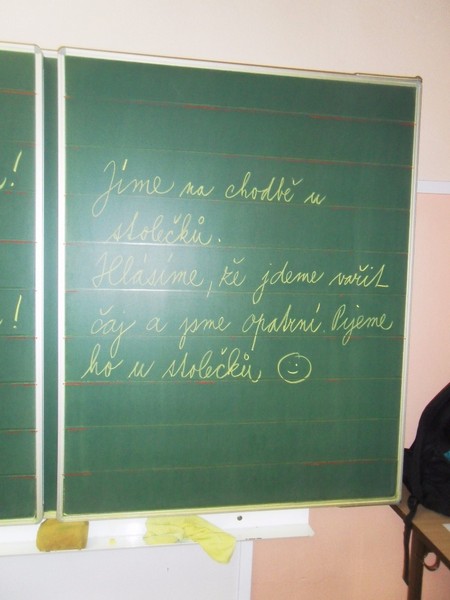 Jíme na chodbě u
stolečků.
Hlásíme, že jdeme vařit
čaj a jsme opatrní. Pijeme
ho u stolečků